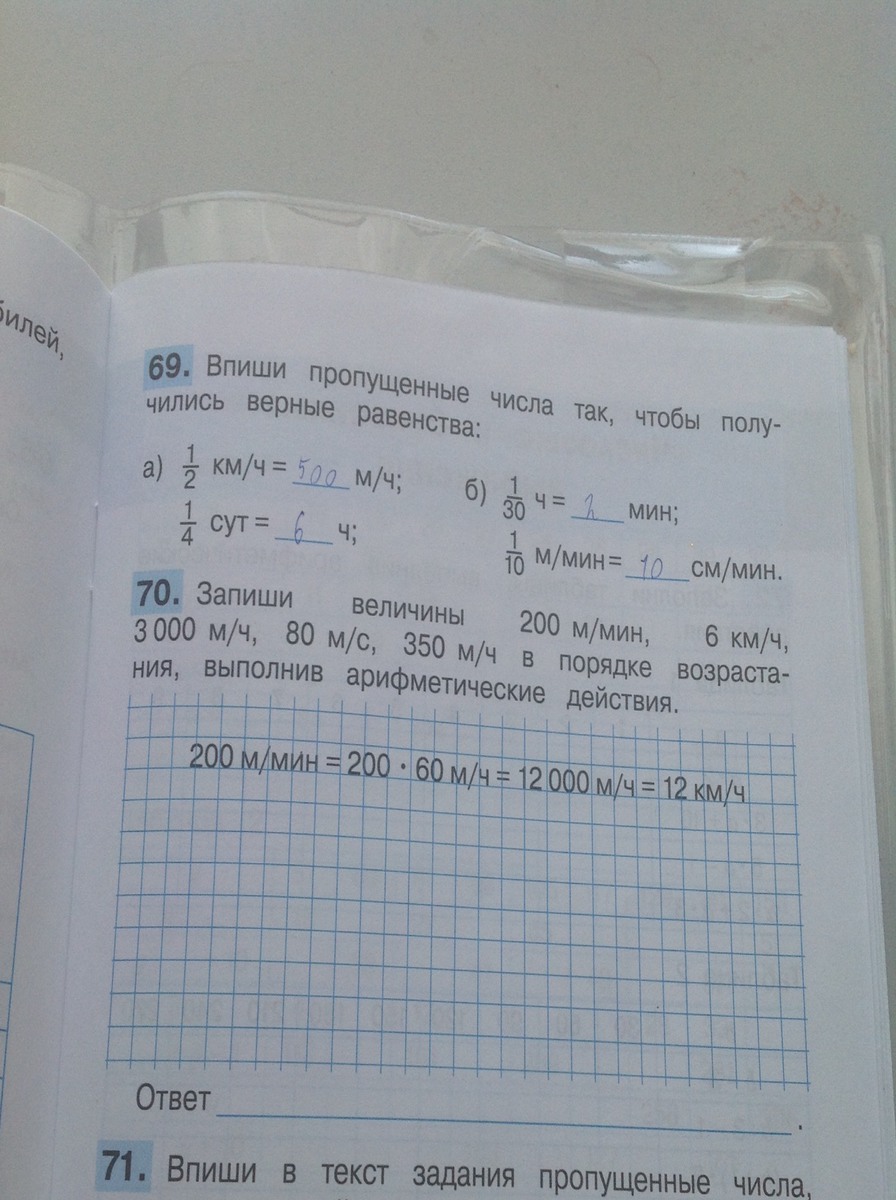 билей,
69. Впиши пропущенные числа так, чтобы полу-
чились верные равенства:
а) 1/2 км/ч = 500 м/ч;
1/4 сут = 6 ч;
б) 1/30 ч = 2 мин;
1/10 м/мин = 10 см/мин.
70. Запиши величины 200 м/мин, 6 км/ч,
3 000 м/ч, 80 м/с, 350 м/ч в порядке возраста-
ния, выполнив арифметические действия.
200 м/мин = 200 · 60 м/ч = 12 000 м/ч = 12 км/ч
Ответ .
71. Впиши в текст задания пропущенные числа,